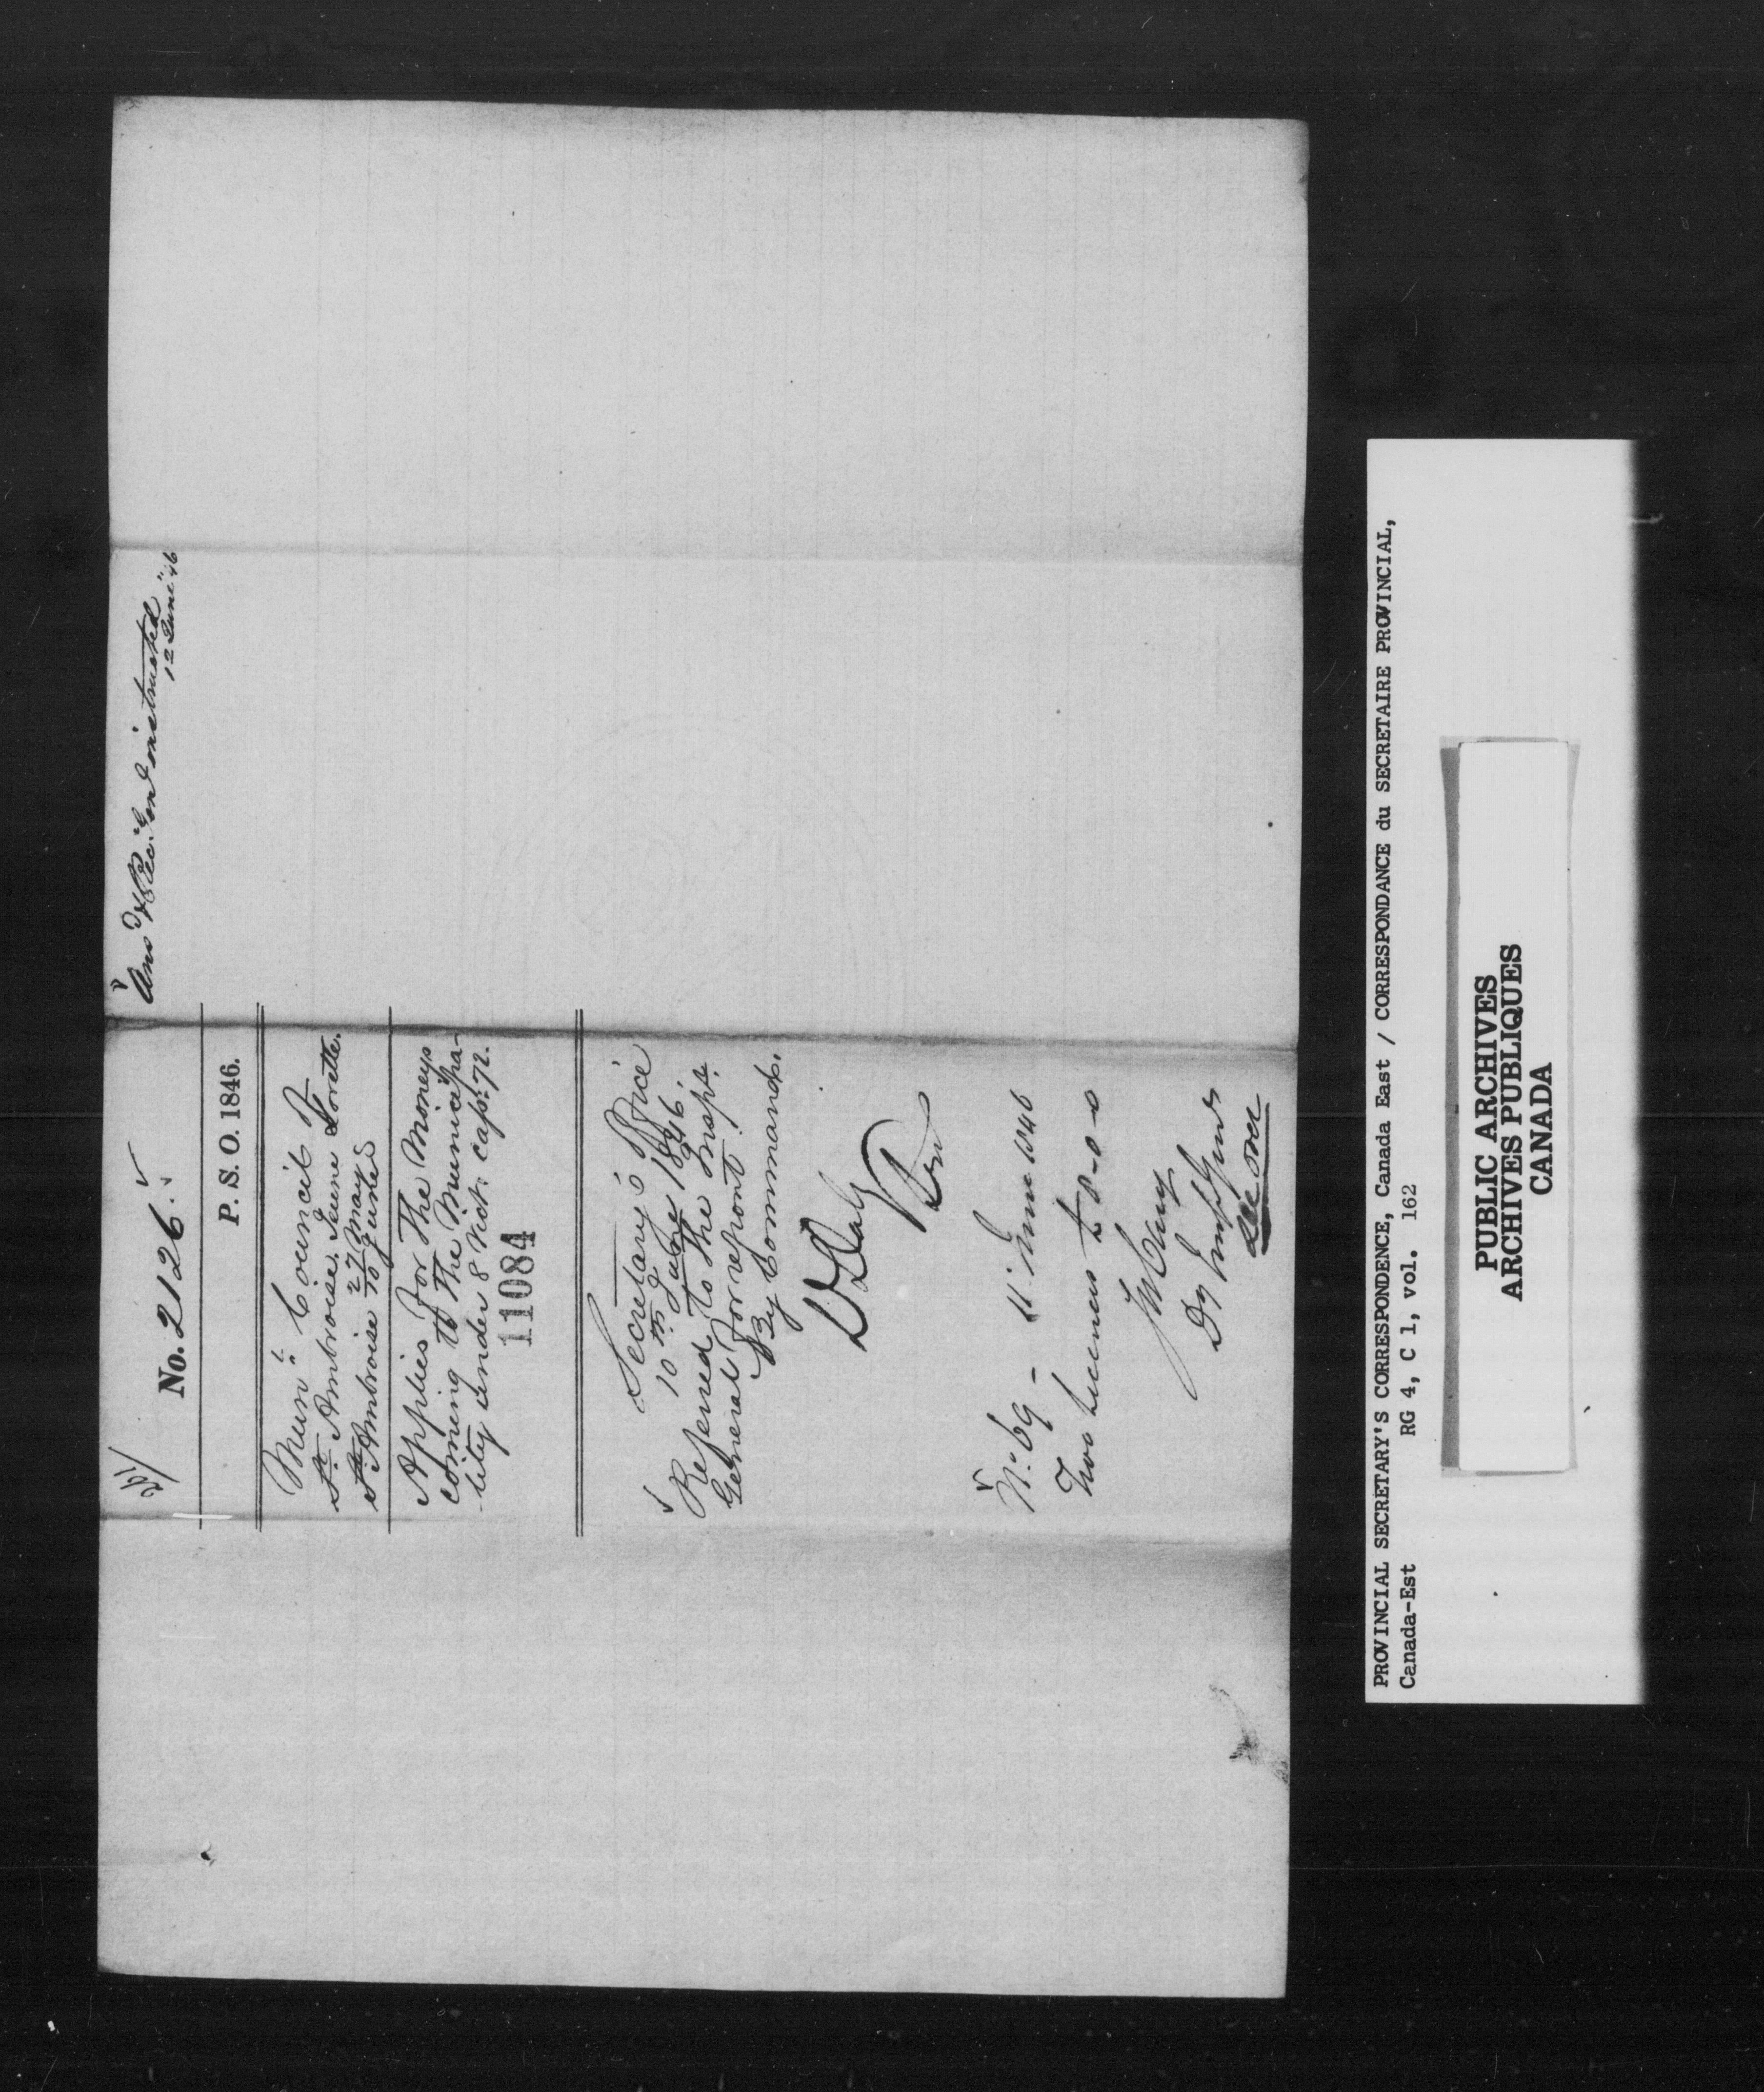 261/
No. 2126.
P. S. O. 1846.
Mun.l Council of
St. Ambroise. Jeune Lorette.
St. Ambroise 27 May
10 June
Applies for the Moneys
coming to the Municipa-
lity under 8 Vict: cap: 72.
11084
Secretary's Office
10th June 1846.
Referred to the Insp.
General for report.
By Command.
D Daly
Sec
No. 69 - 11 June 1846
Two Licenses £8-0-0
Dy Insp Genl
see over
Ansd & Rec. Genl instructed
12 June "46
PROVINCIAL SECRETARY'S CORRESPONDENCE, Canada East / CORRESPONDANCE du SECRETAIRE PROVINCIAL,
Canada-Est RG 4, C 1, vol. 162
PUBLIC ARCHIVES
ARCHIVES PUBLIQUES
CANADA